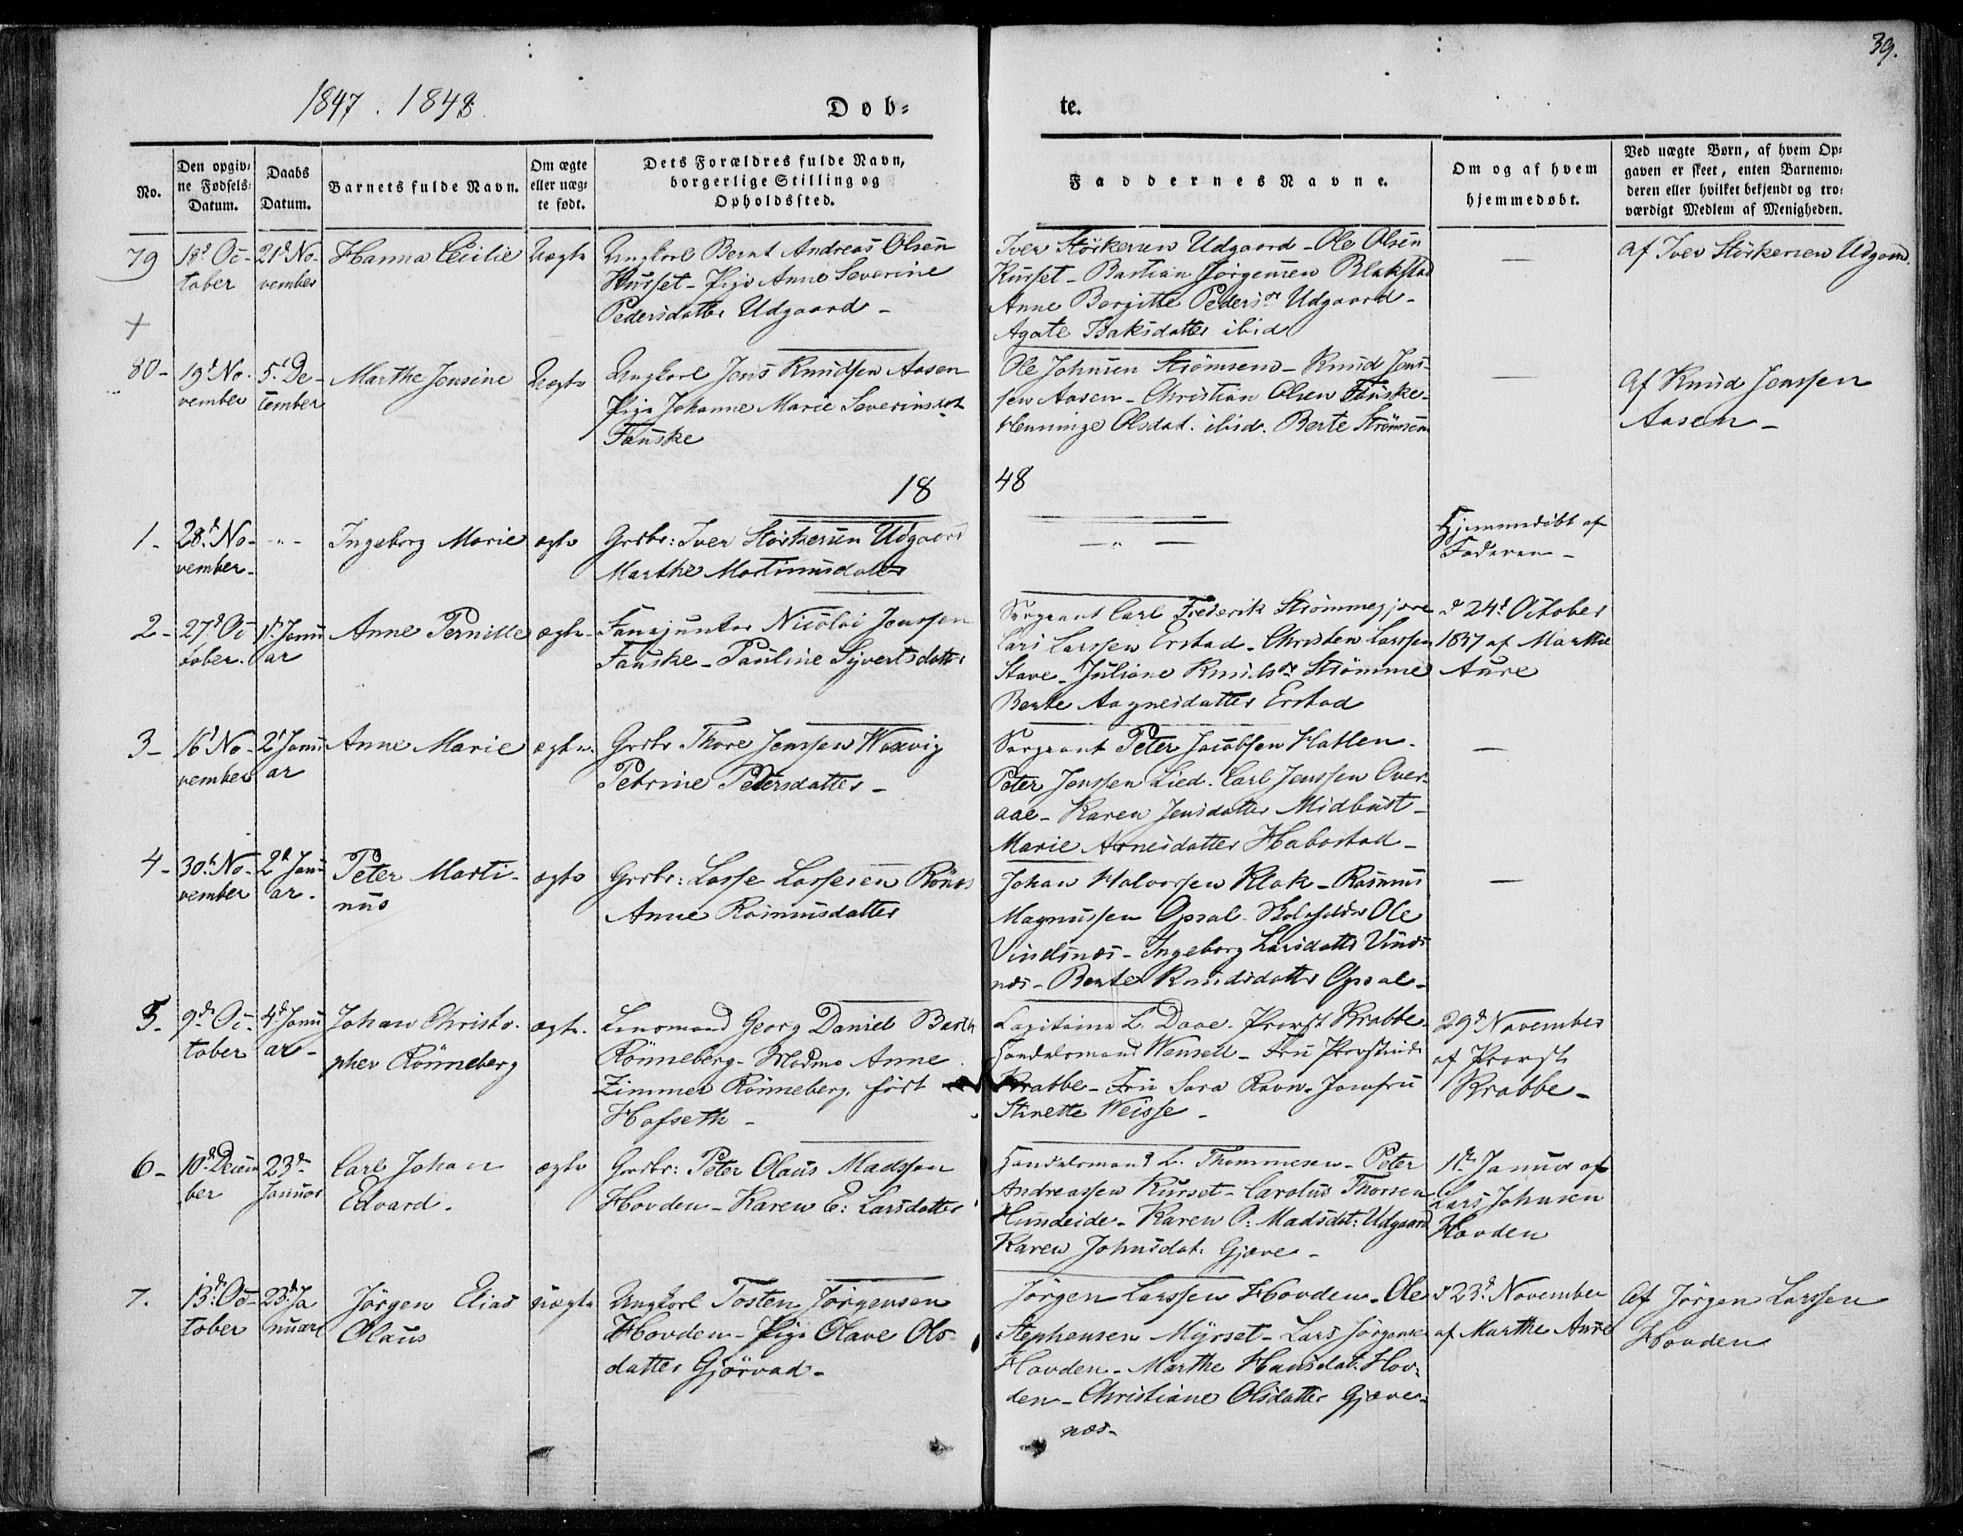 39.
1847. 1848.
Døb=
te.
No.
Den opgiv=
ne Fødsels=
Datum.
Daabs
Datum.
Barnets fulde Navn.
Om ægte
eller uæg=
te født.
Dets Forældres fulde Navn,
borgerlige Stilling og
Opholdssted.
Faddernes Navne.
Om og af hvem
hjemmedøbt.
Ved uægte Børn, af hvem Op=
gaven er skeet, enten Barnemo=
deren eller hvilket bekjendt og tro=
værdigt Medlem af Menigheden.
79 18d Oc-
tober
21d No-
vember
Hanna Cecilie
Uægte
Ungkarl Bernt Andreas Olsen
Kurset - Pige Anne Severine
Pedersdatter Udgaard -
Iver Störkersen Udgaard - Ole Olsen
Kurset - Bastian Jørgensen Blakstad
Anne Bergitte Pedersdr Udgaard -
Agate Isaksdatter ibid
—
af Iver Störkersen Udgaard.
+
80- 19d No-
vember
5t De-
cember
Marthe Jensine
Uægte
Ungkarl Jens Knudsen Aasen
Pige Johanne Marie Severinsdat
Fauske
Ole Johnsen Strømsem - Knud Jens-
sen Aasen - Christian Olsen Fauske -
Henninge Olsdat. ibid. Berte Strömsem
—
Af Knud Jenssen
Aasen -
18 48
1- 28d No-
vember.
-"-
Ingeborg Marie
ægte
Grdbr: Iver Störkersen Udgaard
Marthe Martinusdatter
— " —
Hjemmedøbt af
Faderen -
2- 27d Oc-
tober.
1st Janu
ar
Anne Pernille
ægte-
Fanejunker Nicolai Jenssen
Fauske - Pauline Syvertsdatter
Sergeant Carl Frederik Strømmegjære
Lars Larssen Erstad - Christen Larssen
Stave - Juliane Knudsdr Strömme
Berte Aagnesdatter Erstad
d 24d October
1847 af Marthe
Aure
3- 16d No-
vember
2d Janu
ar
Anne Marie
ægte.
Grdbr Thore Jenssen Waxvig
Petrine Petersdatter -
Sergeant Peter Jacobsen Hatlen -
Peter Jenssen Lied. Carl Jenssen Over-
aae - Karen Jensdatter Midbust -
Marie Arnesdatter Habostad -
—
4- 30d No-
vember
2d Janu
ar.
Peter Marti-
nus
ægte
Grdbr: Lasse Lassesen Rönes
Anne Rasmusdatter
Johan Halvorsen Klok - Rasmus
Magnussen Opsal - Skoleholder Ole
Vindsnes - Ingeborg Larsdatter Vinds
nes - Berte Knudsdatter Opsal -
—
5- 9de Oc-
tober
4d Janu
ar-
Johan Christo-
pher Rönneberg
ægte.
Lensmand Georg Daniel Barth
Rönneberg - Madme Anne
Zimmer Rönneberg. født
Hofseth -
Capitaine L. Daae. Provst Krabbe
Handelsmand Wensell - Fru Provstinde
Krabbe - Fru Sara Ravn - Jomfru
Stinette Weisse -
29d November
af Provst
Krabbe -
6- 10d Decem
ber
23de
Januar
Carl Johan
Edvard.
ægte
Grdbr: Peter Olaus Madssen
Hovden - Karen E: Larsdatter
Handelsmand L. Thommesen - Peter
Andreassen Kurset - Carolus Thorsen
Hundeide - Karen P: Madsdat: Udgaard
Karen Johnsdat. Gjære -
1ste Januar af
Lars Johnsen
Hovden
7. 13d Oc-
tober
23d Ja
nuar
Jörgen Elias
Olaus
uægte
Ungkarl Tosten Jörgensen
Hovden - Pige Olave Ols-
datter Gjörvad -
Jörgen Larssen Hovden - Ole
Stephensen Myrset - Lars Jörgensen
Hovden - Marthe Hansdat. Hov-
den - Christiane Olsdatter Gjære-
nes -
d 23d November
af Marthe Aure
Af Jörgen Larssen
Hovden